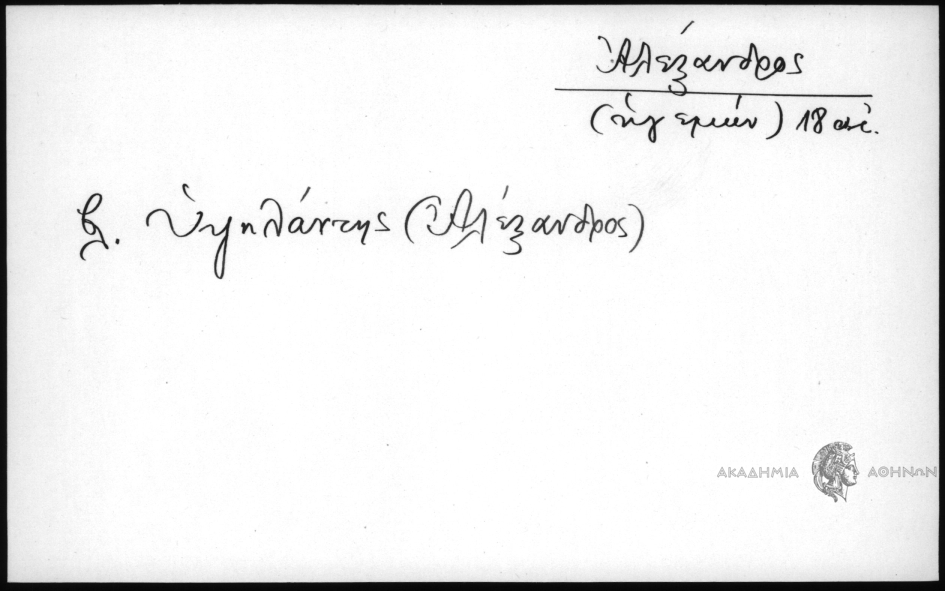 Ἀλέξανδρος
(ἡγεμών) 18 αἰ.
β. Ὑψηλάντης (Ἀλέξανδρος)
ΑΚΑΔΗΜΙΑ ΑΘΗΝΩΝ